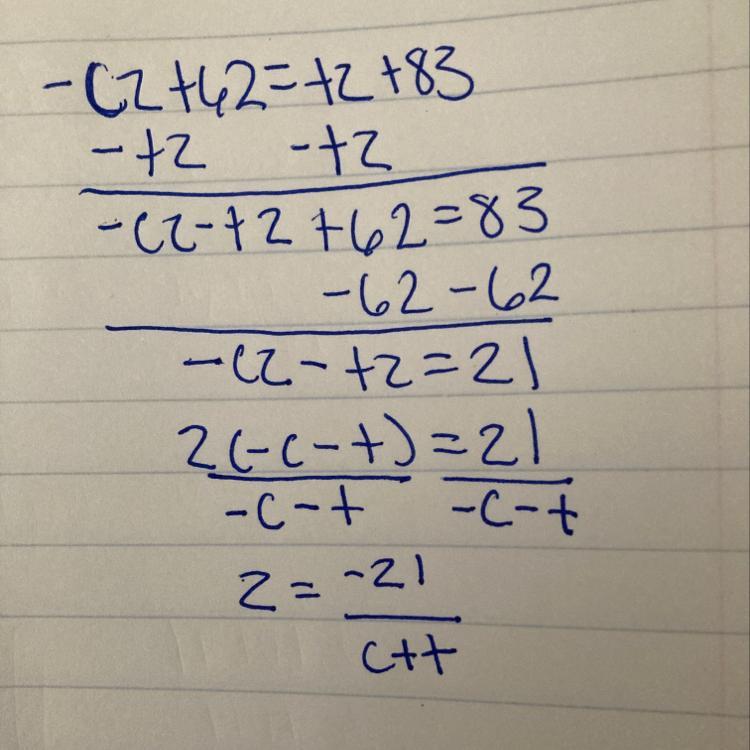 -cz+62=tz+83
-tz -tz
-cz-tz+62=83
-62 -62
-cz-tz=21
z(-c-t)=21
-c-t -c-t
z = -21
c+t